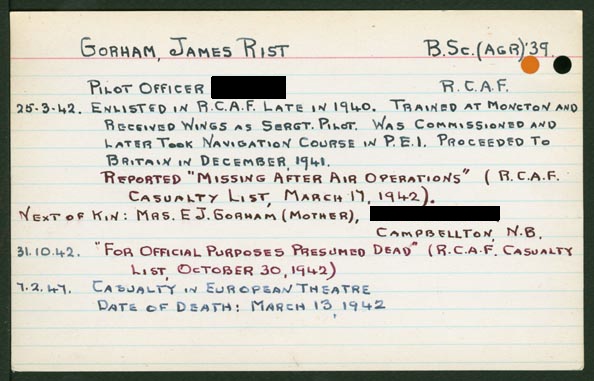 GORHAM, JAMES RIST B.Sc.(AGR)'39.
PILOT OFFICER R.C.A.F.
25-3-42. ENLISTED IN R.C.A.F. LATE IN 1940. TRAINED AT MONCTON AND
RECEIVED WINGS AS SERGT. PILOT. WAS COMMISSIONED AND
LATER TOOK NAVIGATION COURSE IN P.E.I. PROCEEDED TO
BRITAIN IN DECEMBER, 1941.
REPORTED "MISSING AFTER AIR OPERATIONS" (R.C.A.F.
CASUALTY LIST, MARCH 17, 1942).
NEXT OF KIN: MRS. E J. GORHAM (MOTHER),
CAMPBELLTON, N.B.
31.10.42. "FOR OFFICIAL PURPOSES PRESUMED DEAD" (R.C.A.F. CASUALTY
LIST, OCTOBER 30, 1942)
7.2.47. CASUALTY IN EUROPEAN THEATRE
DATE OF DEATH: MARCH 13, 1942